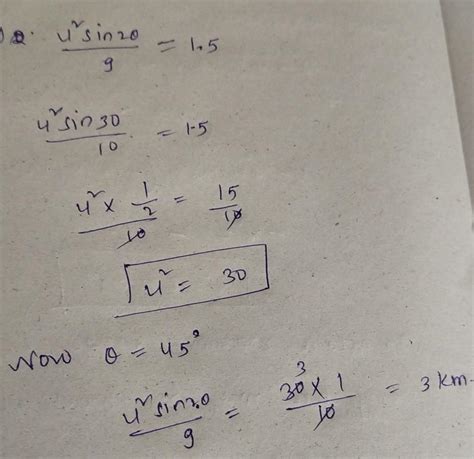 u² sin2θ / g = 1.5
u² sin30 / 10 = 1.5
u² × 1/2 / 10 = 15/10
u² = 30
Now θ = 45°
u² sin2θ / g = 30 3 × 1 / 10 = 3 km.